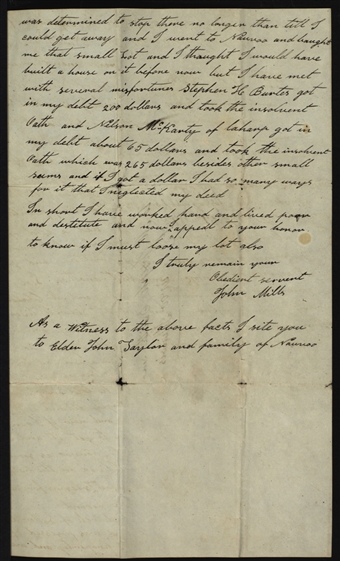 was determined to stop there no longer than till I
could get away and I went to Nauvoo and bought
me that small Lot and I thought I would have
built a house on it before now but I have met
with several misfortunes Stephen H Burtis got
in my debt 200 dollars and took the insolvent
Oath and Nelson McKarty of laharp got in
my debt about 65 dollars and took the insolvent
Oath which was 265 dollars besides other small
seums and if I got a dollar I had so many ways
for it that I neglected my deed
In short I have worked hard and lived poor
and destitute and now I appeal to your honor
to know if I must loose my lot also
I truly remain your
Obedient servent
John Mills
As a Witness to the above facts I site you
to Elder John Taylor and family of Nauvoo